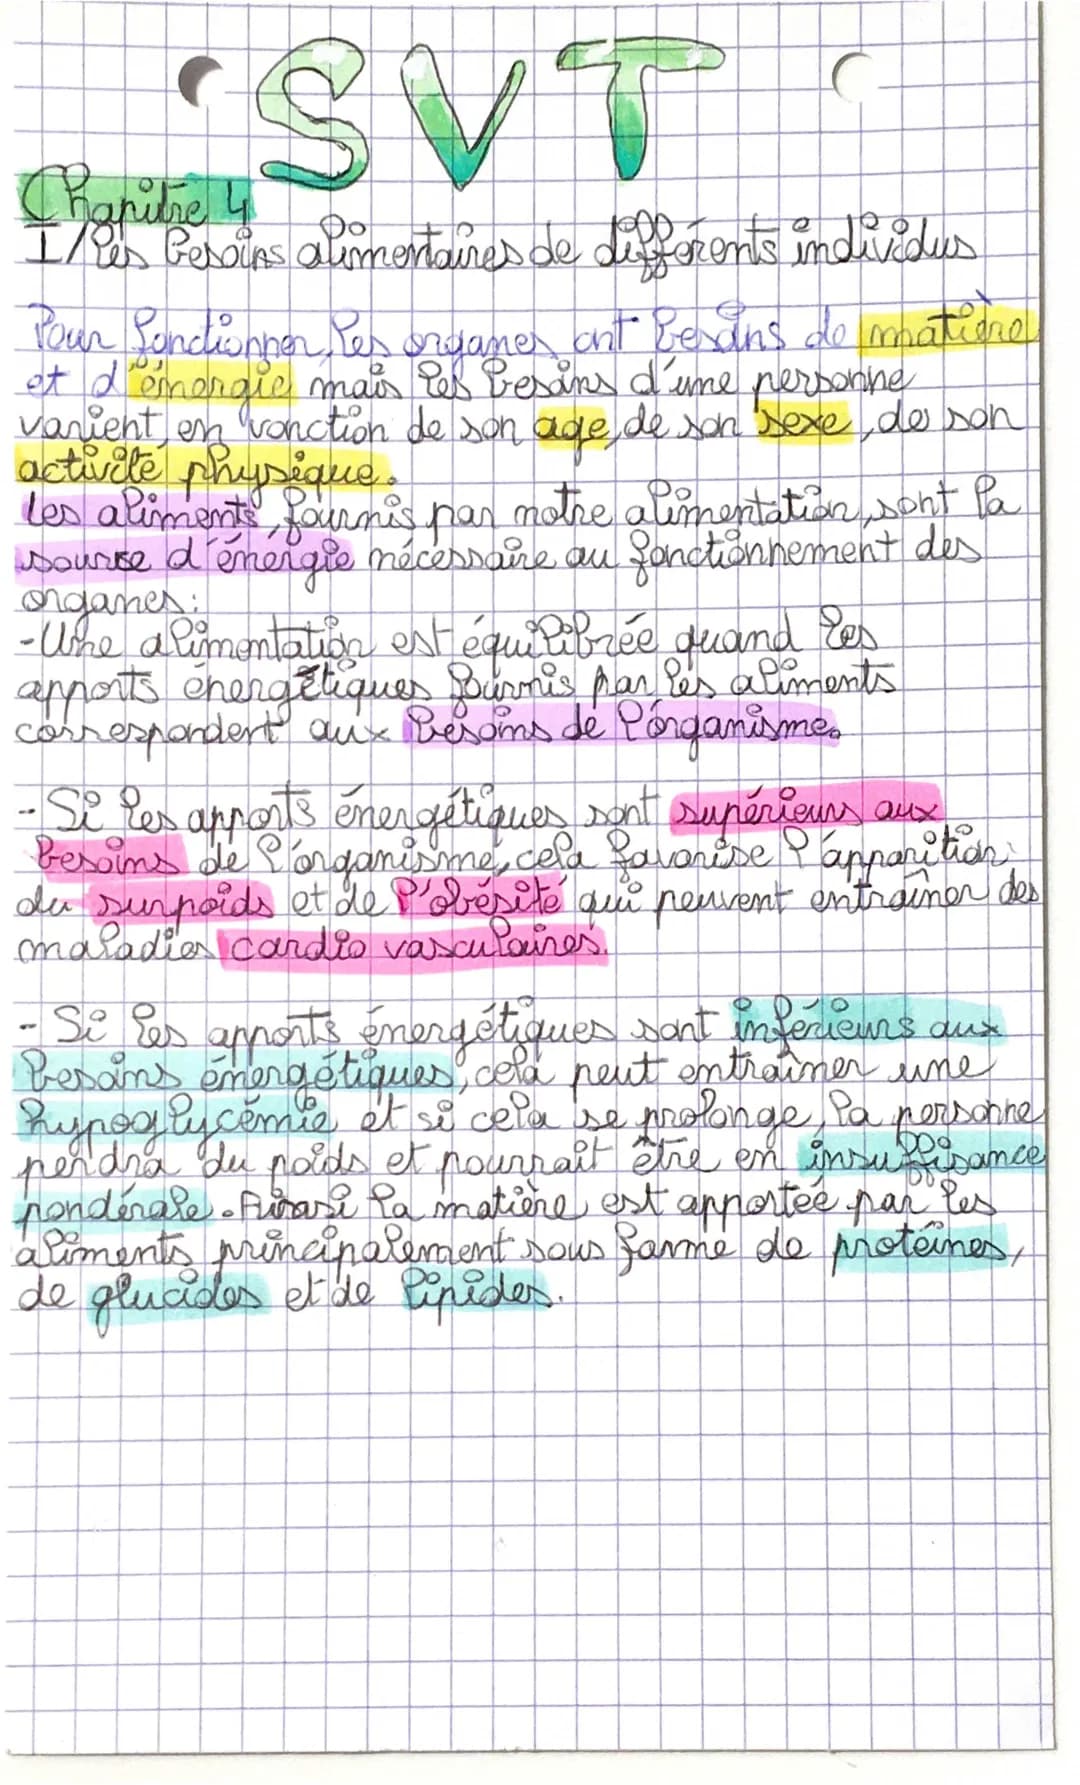 SVT
Chapitre 4
I/les besoins alimentaires de différents individus
Pour fonctionner, les organes ont besoins de matière
et d'énergie mais les besoins d'une personne
varient, en vonction de son age, de son sexe, de son
activité physique.
les aliments, fournis par notre alimentation, sont la
source d'énergie nécessaire au fonctionnement des
organes:
-Une alimentation est équilibrée quand les
apports énergétiques fournis par les aliments
correspondent aux besoins de l'organisme.
- Si les apports énergétiques sont supérieurs aux
besoins de l'organisme, cela favorise l'apparition
du surpoids et de l'obésité qui peuvent entraîner des
maladies cardio vasculaires.
- Si les apports énergétiques sont inférieurs aux
besoins énergétiques, cela peut entraîner une
hypoglycémie et si cela se prolonge, la personne
perdra du poids et pourrait être en insuffisance
pondérale. Ainsi la matière est apportée par les
aliments principalement sous forme de protéines,
de glucides et de lipides.